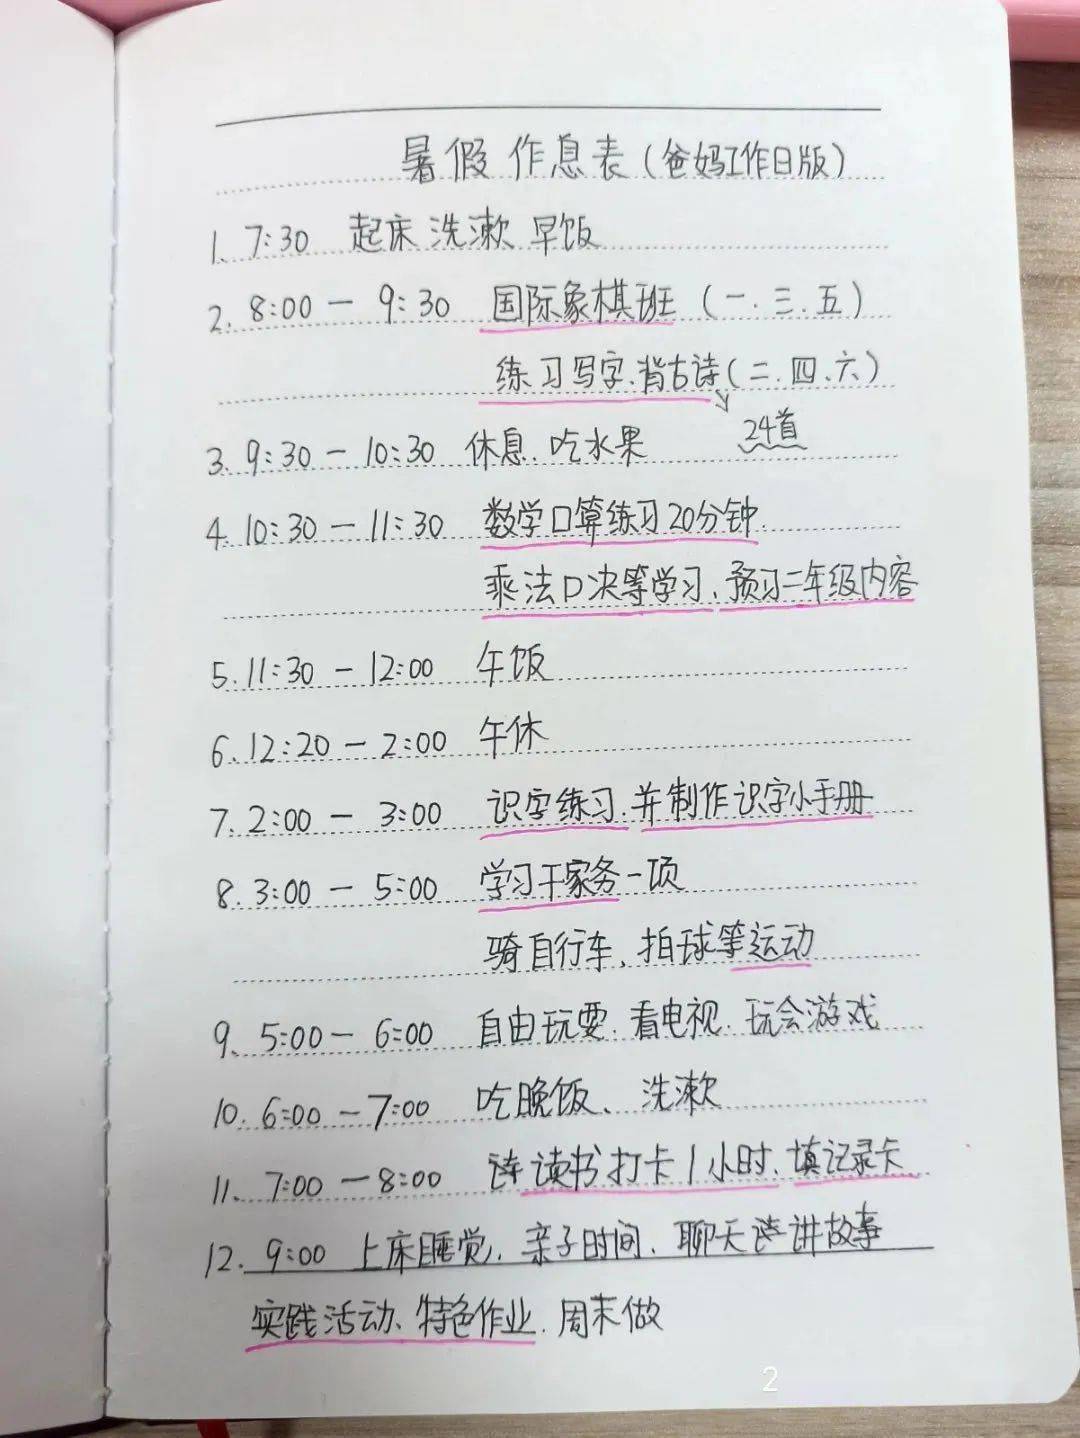 暑假作息表(爸妈工作日版)
1、7:30 起床 洗漱 早饭
2. 8:00 — 9:30 国际象棋班 (一.三.五)
练习写字.背古诗(二.四.六)
24首
3. 9:30 — 10:30 休息.吃水果
4. 10:30 — 11:30 数学口算练习20分钟.
乘法口决等学习.预习二年级内容
5. 11:30 — 12:00 午饭
6. 12:20 — 2:00 午休
7. 2:00 — 3:00 识字练习.并制作识字小手册
8. 3:00 — 5:00 学习干家务一项
骑自行车、拍球等运动
9、5:00 — 6:00 自由玩耍.看电视.玩会游戏
10. 6:00 — 7:00 吃晚饭、洗漱
11、7:00 — 8:00 读书打卡1小时.填记录卡
12. 9:00 上床睡觉,亲子时间、聊天讲故事
实践活动、特色作业.周末做
2